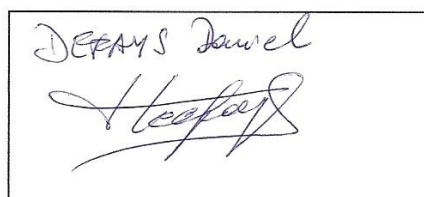 DEFAYS Daniel